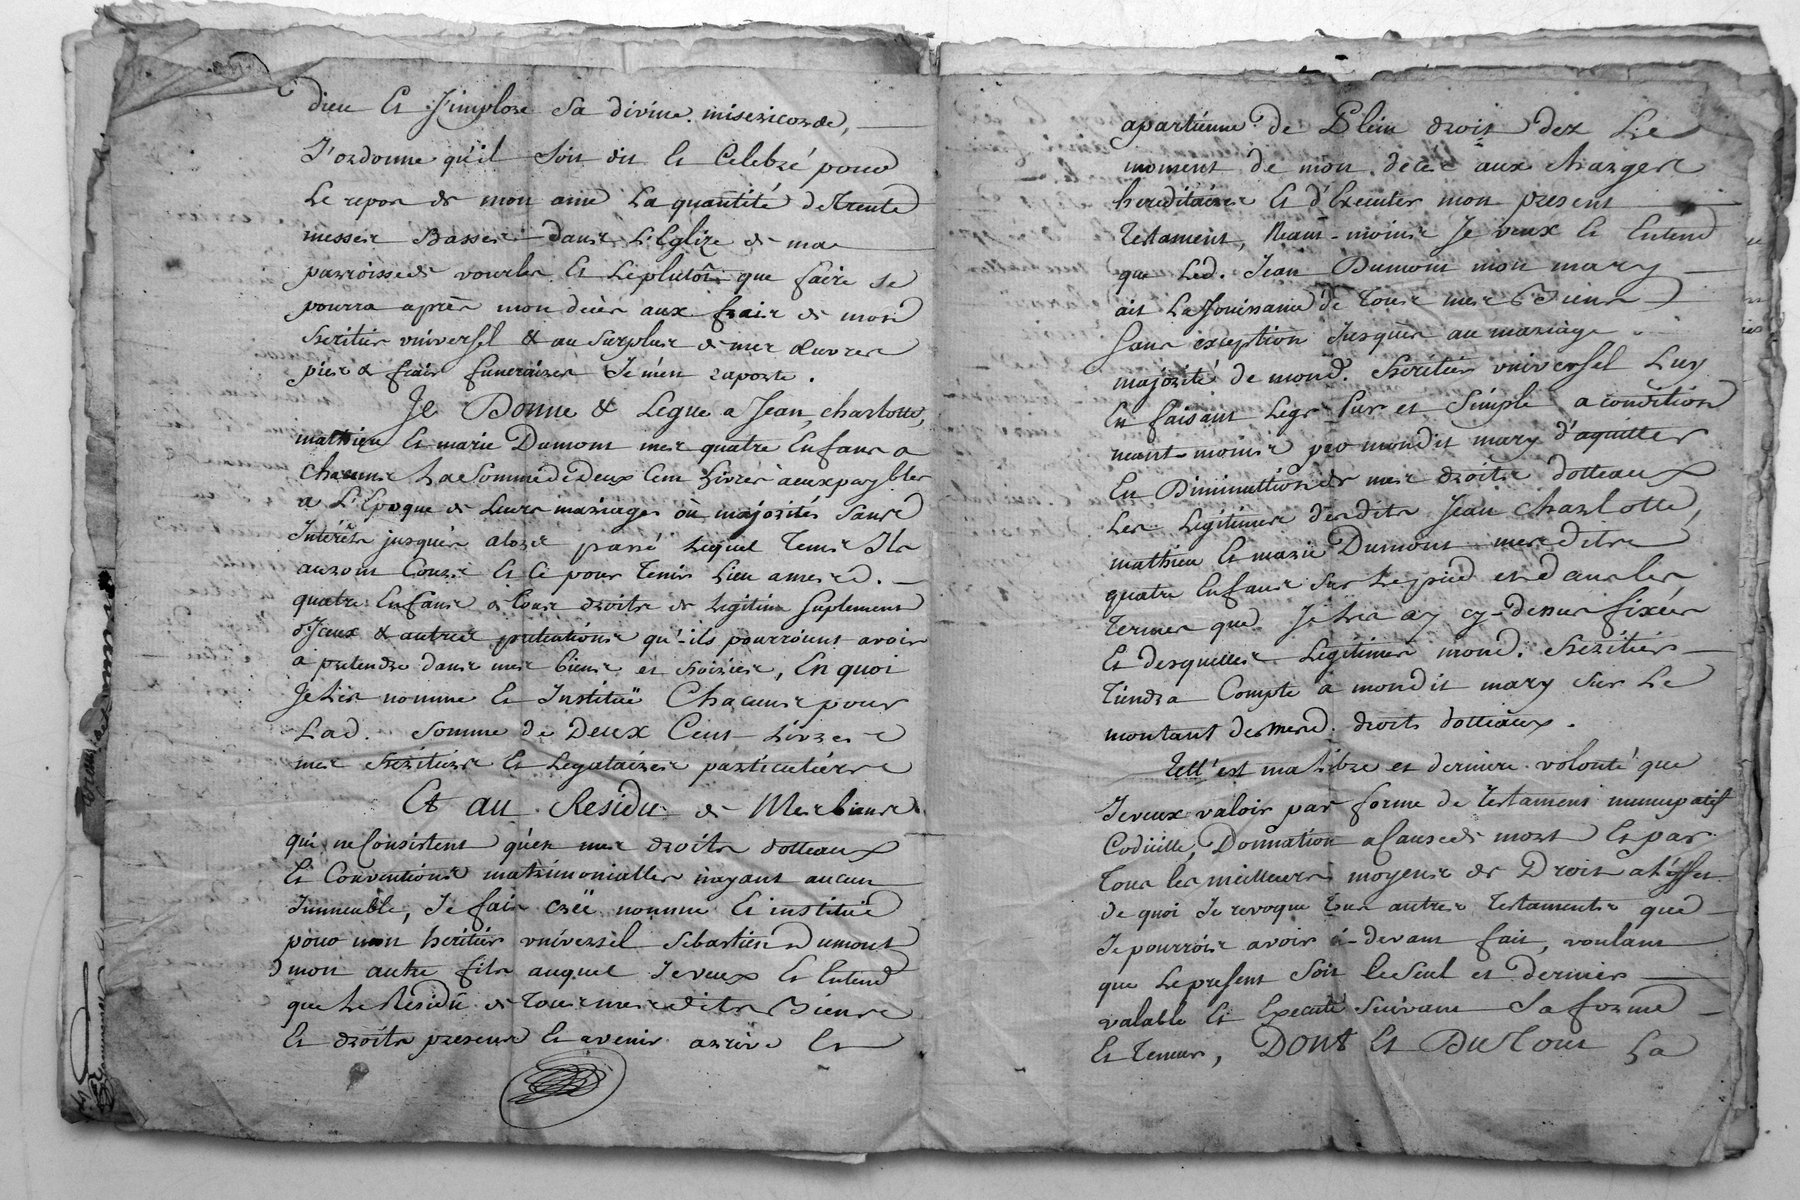 dieu Et J'implore Sa divine misericorde,
J'ordonne qu'il Soit dit Et Celebré pour
Le repos de mon ame La quantité de trente
messes Basses dans L'Eglize de ma
parroisse de vourles Et Leplutôt que faire se
pourra après mon décès aux frais de mon
heritier universel & au Surplus de mes Œuvres
pies & frais funeraires Je m'en raporte.
Je Donne & Legue a Jean, charlotte,
mathieu Et marie Dumont mes quatre Enfans a
chacuns La Somme de Deux Cent Livres à eux payables
a L'Epoque de Leurs mariages où majorités Sans
Intérêts jusques alors passé Lequel Tems Ils
auront Cours Et Ce pour Tenir Lieu a mesd.
quatre Enfans de tous droits de Legitime Suplement
d'Jceux & autres pretentions qu'-ils pourroient avoir
à pretendre dans mes biens et hoiries, En quoi
Je Les nomme Et Instituë Chacuns pour
Lad. Somme de Deux Cent Livres
mes heritiers Et Legataires particuliers
Et au Residu de Mes biens
qui ne Consistent qu'en mes droits dotteaux
Et Conventions matrimonialles n'ayant aucun
Immeuble, Je fais créé nomme Et instituë
pour mon heritier universel Sebastien Dumont
mon autre fils auquel Je veux Et Entend
que Le Residu de Tous mesdits Biens
Et droits presens Et avenir arrive Et
apartienne de Plein droit dez Le
moment de mon décès aux charges
hereditaires Et d'Executer mon present
Testament, Neant-moins Je veux Et Entend
que Led. Jean Dumont mon mary
ait La Jouissance de Tous mes Biens
Sans exception Jusques au mariage
majorité de mond. heritier universel Luy
En faisant Legs Pur et Simple a condition
neant-moins par mondit mary d'aquitter
En Diminuttion de mes droits dotteaux
Les Legitimes desdits Jean Charlotte,
mathieu Et marie Dumont mesdits
quatre Enfans Sur Le pied et dans les
Termes que Je Les ay cy-dessus fixées
Et desquelles Legitimes mond. heritier
Tiendra Compte a mondit mary Sur Le
montant de mesd. droits dotteaux.
Tell'est ma Libre et derniere volonté que
Je veux valoir par forme de Testament nuncupatif
Codicille, Donnation a Cause de mort Et par
Tous les meilleurs moyens de Droit a l'effet
de quoi Je revoque Tous autres Testaments que
Je pourrois avoir ci-devant fait, voulant
que Le present Soit le Seul et dernier
valable Et Executé Suivant Sa forme
Et Teneur, Dont Et Du Tout La